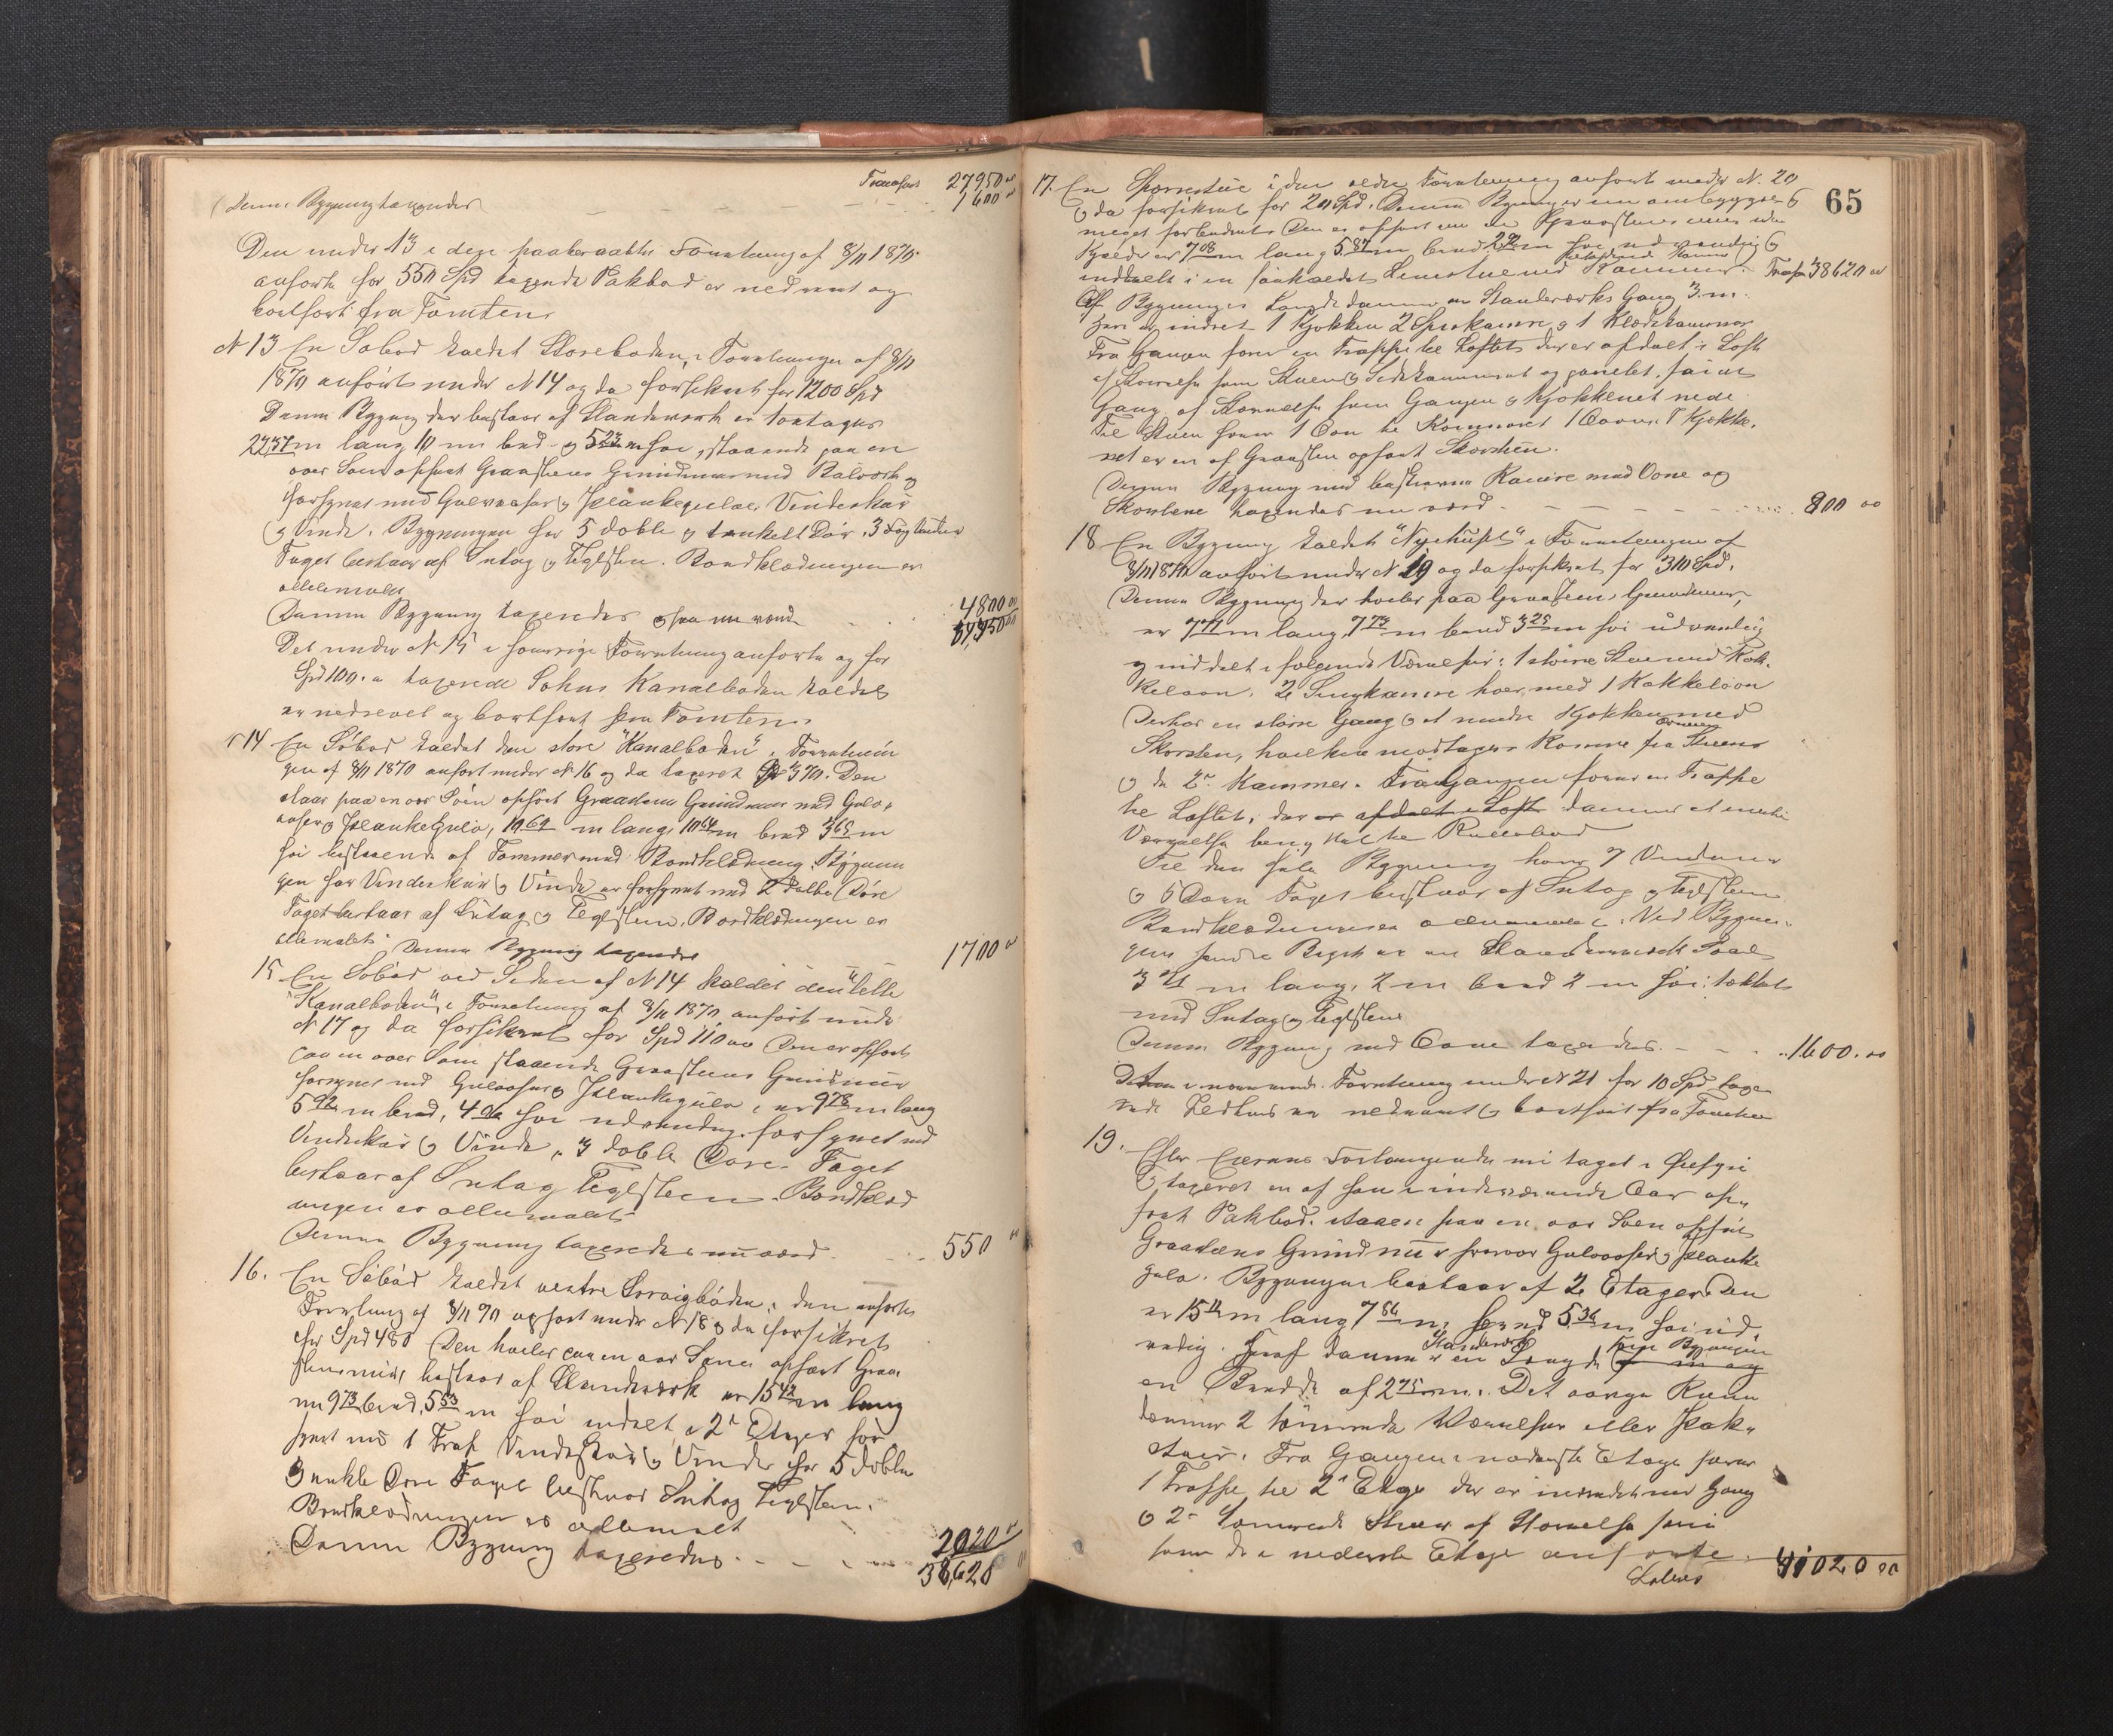 Transport 27,950 00
Denne Bygning taxeredes 1600 00
Den under 13 i den paaberaabte Forretning af 8/11 1870
anførte for 550 Spd taxerede Pakbod er nedrevet og
bortført fra Tomten
N 13 En Søbod kaldet Storeboden, i Forretningen af 8/11
1870 anført under N 14 og da forsikret for 1200 Spd
Denne Bygning der bestaar af Standværk er toetages
m lang 10 m bred og 5 m høi, staaende paa en
over Søen opført Graastens Grundmur med Bolværk og
forsynet med Gulvaaser og Plankegulve Vindeskur
og Vinde. Bygningen har 5 doble og 1 enkelt Dør, 3 Fag Vinduer
Taget bestaar af Sutag og Teglsten. Bordklædningen er
oliemalet
Denne Bygning taxeredes 4800 00
34,350 00
Det under N 15 i forrige Forretning anførte og for
Spd 100. taxerede Søhus Kanalboden kaldet
er nedrevet og bortført fra Tomten.
N 14 En Søbod kaldet den store "Kanalboden" i Forretnin
gen af 8/11 1870 anført under N 16 og da taxeret Spd 370. Den
staar paa en over Søen opført Graastens Grundmur med Gulv
aaser og Plankegulv, 10 69 m lang, 10 64 m bred 3 65 m
høi bestaaende af Tømmer med Bordklædning. Bygnin
gen har Vindeskur og Vinde er forsynet med 2 dolbe Døre
Taget bestaar af Sutag og Teglsten. Bordklædningen er
oliemalet. Denne Bygning taxeredes 1700 00
15 En Søbod ved Siden af N 14 kaldet den "lille
Kanalboden" i Forretning af 8/11 1870 anført under
N 17 og da forsikret for Spd 110 Den er opført
paa en over Søen staaende Graastens Grundmur
forsynet med Gulvaaser og Plankegulv, er 9 78 m lang
5 92 m bred, 4 høi udvendig forsynet med
Vindeskur og Vinde, 3 doble Døre. Taget
bestaar af Sutag Teglsteen. Bordklæd
ningen er oliemalet
Denne Bygning taxeredes nu værd 550 00
16. En Søbod kaldet vestre i den anførte
Forretning af 8/11 70 opført under N 18 og da forsikret
for Spd 480 Den hviler paa en over Søen opført Graa
stensmur, bestaar af Standværk er 15 42 m lang
m 9 73 bred, 5 53 m høi indelt i 2 Etager for
synet med 1 Trap Vindeskur og Vinde har 5 doble
3 enkle Døre Taget bestaar Sutag Teglsten.
Bordklædningen er oliemalt
Denne Bygning taxeredes 2020 00
38,620
65
17. En i den ældre Forretning anført under N. 20
og da forsikret for 20 Spd. Denne Bygning er nu ombygget og
meget forbedret Den er opført en Graastens mur uden
Kjælder er 7 08 m lang 5 87 m bred 2 m høi udvendig og
inddelt i en saakaldet med Kammer. Transp 38620 00
Af Bygningens Længde danner en Standværks Gang 3 m
heri er indret 1 Kjøkken 2 Spiskamre og 1 Klædekammer
Fra Gangen fører en Trappe til Loftet der er afdelt i Loft
af Størrelse som Stuen og Sidekammeret og panelet, samt
Gang af Størrelse som Gangen og Kjøkkenet nede
Til Stuen hører 1 Ovn til Kammeret 1 Ovn. I Kjøkke
net er en af Graasten opført Skorsten.
Denne Bygning med beskrevne Kamre med Ovne og
Skorstene taxeredes nu værd 800 00
18 En Bygning kaldet "Nyehuset" i Forretningen af
8/11 1870 anført under N 19 og da forsikret for 310 Spd.
Denne Bygning der hviler paa Graasteens Grundmur,
er 7 71 m lang, 7 73 m bred 3 25 m høi udvendig
og inddelt i følgende Værelser: 1 større Stue med Kak-
kelovn. 2 Sengkamre hver med 1 Kakkelovn
Derhos en større Gang og et mindre Kjøkken med
Skorsten, hvilken modtager Rørene fra Stuens
og de 2 Kammer. Ovnene Fra Gangen fører en Trappe
til Loftet, der er afdelt i Loft danner et
Værelse benyttet til
Til den hele Bygning hører 7 Vinduer
og 5 Døre Taget bestaar af Sutag og Teglsten
Bordklædningen oliemalet. Ved Bygnin-
gens er en Standværks
3 71 m lang, 2 m bred 2 m høi tækket
med Sutag og Teglsten
Denne Bygning med Ovne taxeredes 1600.00
Det i nævnte Forretning under N 21 for 10 Spd taxe
rede Ildhus er nedrevet og bortført fra Tomten
19. Efter Eierens Forlangende nu taget i Øiesyn
og taxeret en af ham i indeværende Aar op-
ført Pakbod. Staaende paa en over Søen opført
Graastens Grundmur hvorover Gulvaaser og Planke
gulv. Bygningen bestaar af 2 Etager. Den
er 15 m lang 7 86 m. bred 5 36 m høi ud-
vendig. Heraf danner Standværk en Længde som Bygningen
en Bredde af 2 75 m. Det øvrige Rum
danner 2 tømrede Værelser eller Pak-
stuer. Fra Gangen i nederste Etage fører
1 Trappe til 2 Etage der er inredet med Gang
og 2 tømrede Stuer af Størrelse som
som de i nederste Etage anførte.
Lateris 41020 00